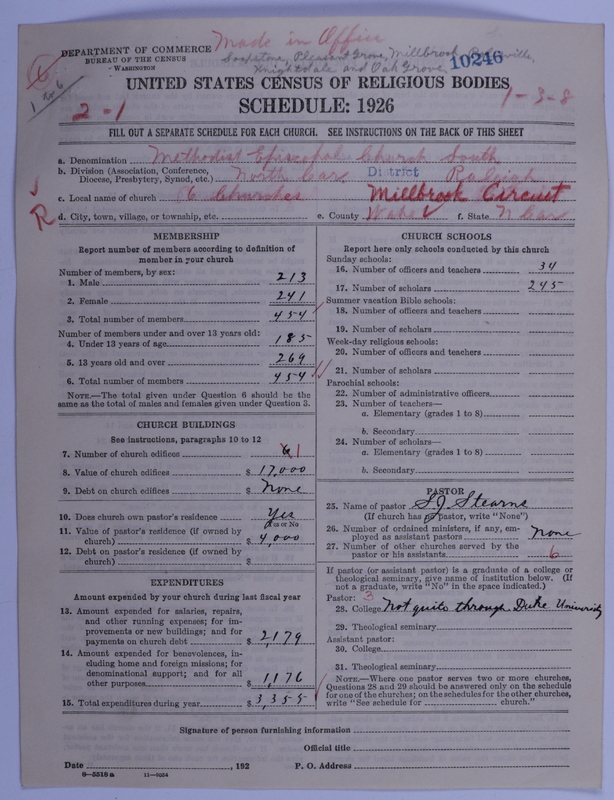 Made in Office
DEPARTMENT OF COMMERCE
BUREAU OF THE CENSUS
WASHINGTON
Soapstone, Pleasant Grove, Millbrook,
Knightdale and Oak Grove
10246
6
1 of 6
2 - 1
1 - 3 - 8
UNITED STATES CENSUS OF RELIGIOUS BODIES
SCHEDULE: 1926
FILL OUT A SEPARATE SCHEDULE FOR EACH CHURCH. SEE INSTRUCTIONS ON THE BACK OF THIS SHEET
a. Denomination Methodist Episcopal Church South
b. Division (Association, Conference, Diocese, Presbytery, Synod, etc.) North Car District Raleigh
c. Local name of church 6 Churches Millbrook Circuit
R
d. City, town, village, or township, etc. e. County Wake f. State N Car
MEMBERSHIP
Report number of members according to definition of
member in your church
Number of members, by sex:
1. Male 213
2. Female 241
3. Total number of members 454
Number of members under and over 13 years old:
4. Under 13 years of age 185
5. 13 years old and over 269
6. Total number of members 454
NOTE.—The total given under Question 6 should be the
same as the total of males and females given under Question 3.
CHURCH BUILDINGS
See instructions, paragraphs 10 to 12
7. Number of church edifices 6 1
8. Value of church edifices $ 17,000
9. Debt on church edifices $ None
10. Does church own pastor's residence Yes
Yes or No
11. Value of pastor's residence (if owned by
church) $ 4,000
12. Debt on pastor's residence (if owned by
church) $
EXPENDITURES
Amount expended by your church during last fiscal year
13. Amount expended for salaries, repairs,
and other running expenses; for im-
provements or new buildings; and for
payments on church debt $ 2,179
14. Amount expended for benevolences, in-
cluding home and foreign missions; for
denominational support; and for all
other purposes $ 1,176
15. Total expenditures during year $ 3,355
CHURCH SCHOOLS
Report here only schools conducted by this church
Sunday schools:
16. Number of officers and teachers 34
17. Number of scholars 245
Summer vacation Bible schools:
18. Number of officers and teachers
19. Number of scholars
Week-day religious schools:
20. Number of officers and teachers
21. Number of scholars
Parochial schools:
22. Number of administrative officers
23. Number of teachers—
a. Elementary (grades 1 to 8)
b. Secondary
24. Number of scholars—
a. Elementary (grades 1 to 8)
b. Secondary
PASTOR
25. Name of pastor S J Stearne
(If church has no pastor, write "None")
26. Number of ordained ministers, if any, em-
ployed as assistant pastors None
27. Number of other churches served by the
pastor or his assistants 6
If pastor (or assistant pastor) is a graduate of a college or
theological seminary, give name of institution below. (If
not a graduate, write "No" in the space indicated.)
Pastor: 3
28. College Not quite through Duke University
29. Theological seminary
Assistant pastor:
30. College
31. Theological seminary
NOTE.—Where one pastor serves two or more churches,
Questions 28 and 29 should be answered only on the schedule
for one of the churches; on the schedules for the other churches,
write "See schedule for church."
Signature of person furnishing information
Official title
Date , 192 P. O. Address
8—5518a 11—9054